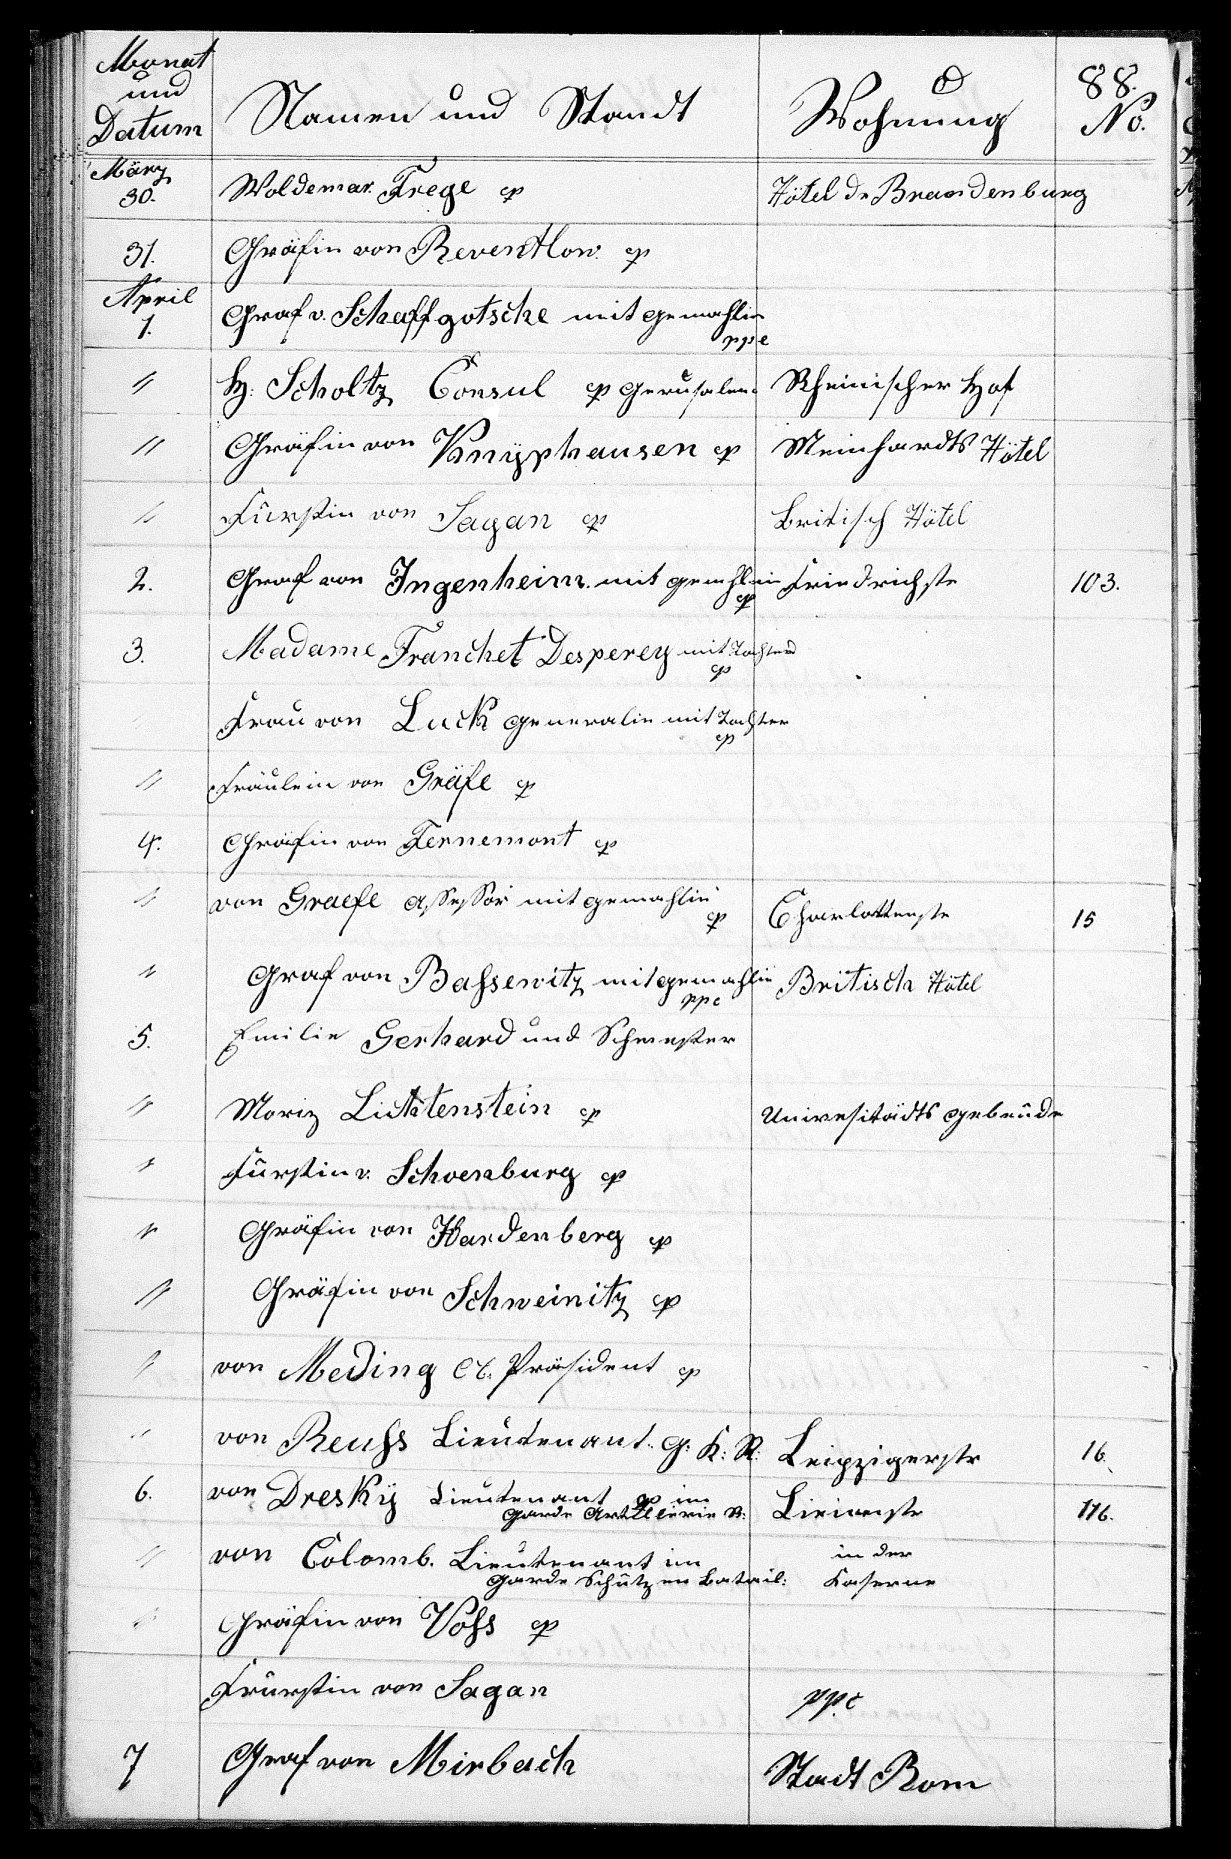 Monat und Datum Namen und Standt Wohnung 88. No.
März 30. Woldemar Frege cp Hôtel de Brandenburg
31. Gräfin von Reventlow. cp
April 1. Graf v. Schaffgotsche mit gemahlin ppc
" H. Scholtz Consul cp Jerusalem Rheinischer Hof
" Gräfin von Knÿphausen cp Meinhardts Hôtel
" Fürstin von Sagan cp Britisch Hôtel
2. Graf von Ingenheim. mit gemhlin cp Friedrichstr 103.
3. Madame Franchet Desperey mit Tochter cp
Frau von Luck generalin mit Tochter cp
" Fräulein von Gräfe cp
4. Gräfin von Fernemont cp
" von Graefe Assessor mit gemahlin cp Charlottenstr 15
" Graf von Bassewitz mit gemahlin ppc Britisch Hôtel
5. Emilie Gerhard und Schwester
" Moriz Lichtenstein cp Univesitädts gebeude
" Fürstin v. Schoenburg cp
" Gräfin von Hardenberg cp
" Gräfin von Schweinitz cp
" von Meding Präsident cp
" von Reuss Lieutenant. G: K: R: Leipzigerstr 16.
6. von Dreskÿ Lieutenant cp im
Garde Artillerie R: 116.
" von Colomb. Lieutenant im in der
Garde Schützen Batail: Kaserne
" Gräfin von Voss cp
Früirstin von Sagan ppc
7 Graf von Mirbach Stadt Rom